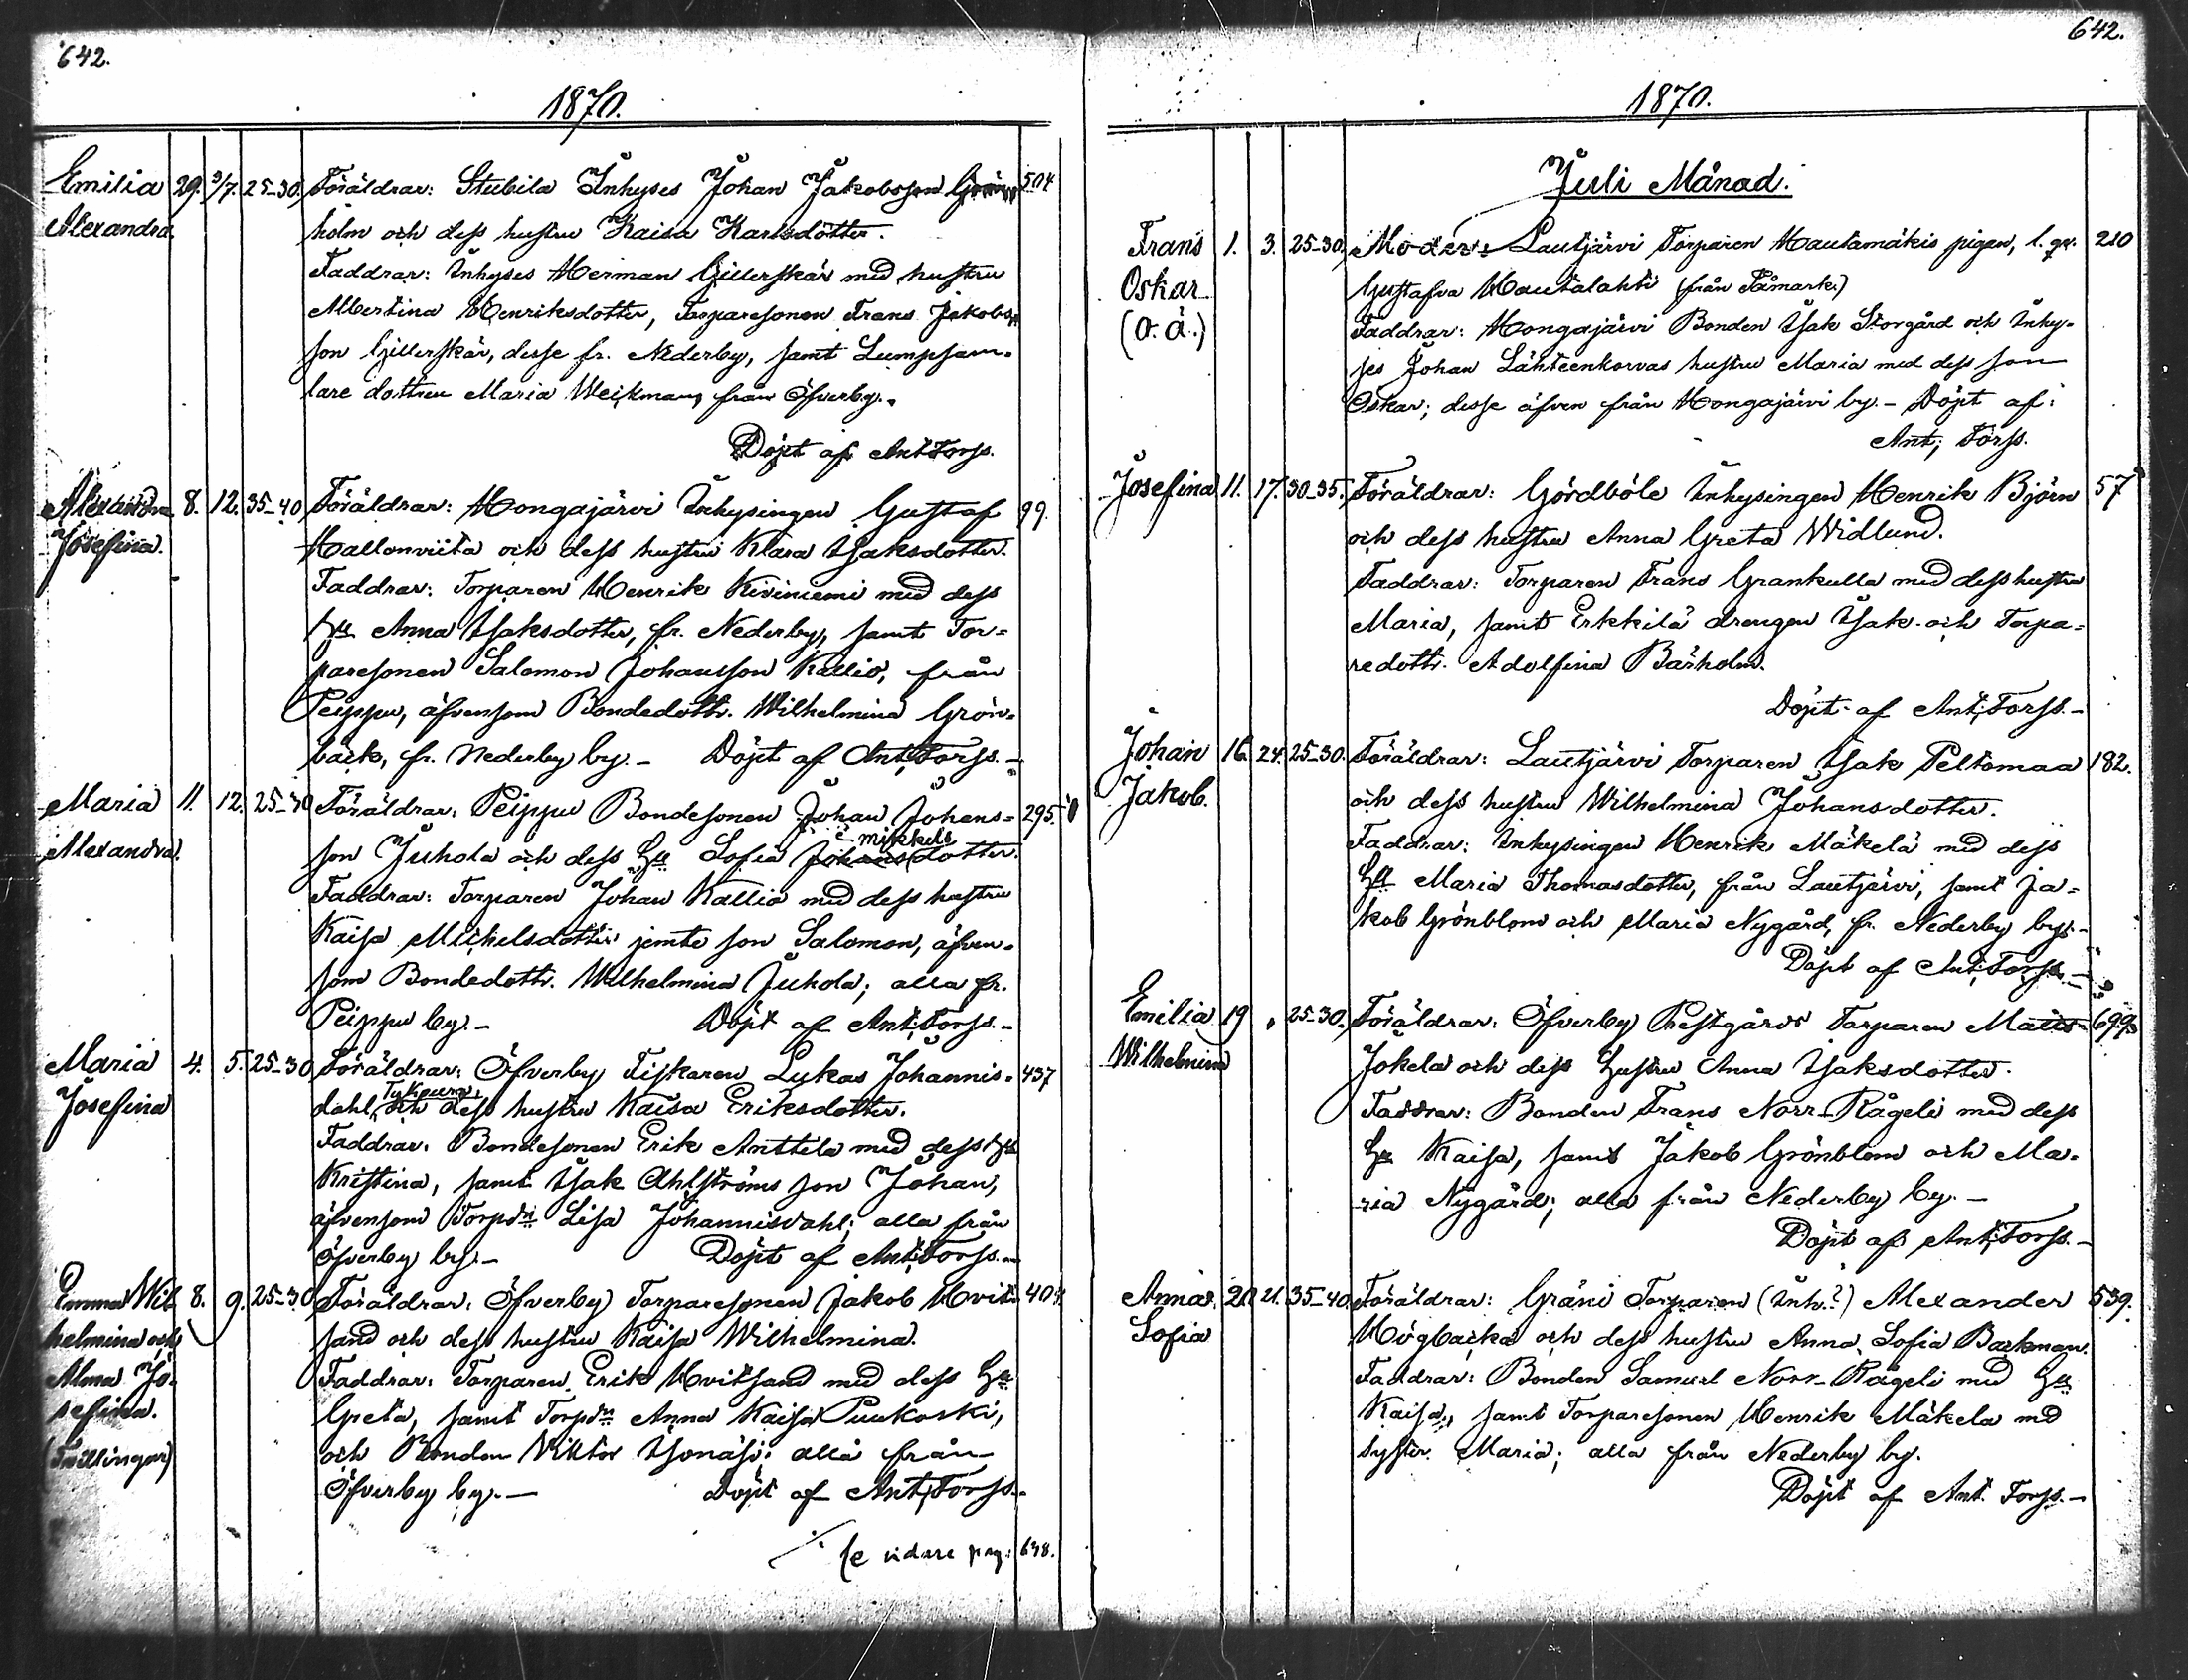 642.
1870.
Emilia 29. 3/7. 25-30. Föräldrar: Stubila Inhyses Johan Jakobsson Grän 504
Alexandra. holm och dess hustru Kaisa Karlsdotter.
Faddrar: Inhyses Herman Gillerskär med hustru
Albertina Henriksdotter, Torparesonen Frans Jakobs
son Gillerskär, desse fr. Nederby, samt Lumpsam-
lare dottren Maria Weikman, från Öfverby.
Döpt af Ant. Forss.
Alexandra 8. 12. 35-40 Föräldrar: Hongajärvi Inhysingen Gustaf 99.
Josefina. Hallonviita och dess hustru Klara Isaksdotter.
Faddrar: Torparen Henrik Kiviniemi med dess
Hu Anna Isaksdotter, fr. Nederby, samt Tor-
paresonen Salomon Johansson Kallio, från
Peippu, äfvensom Bondedottr. Wilhelmina Grön-
back, fr. Nederby by.- Döpt af Ant. Forss.-
Maria 11. 12. 25-30 Föräldrar: Peippu Bondesonen Johan Johans- 295.
Alexandra. son Juhola och dess Hu Sofia Johans Mikkels dotter.
Faddrar: Torparen Johan Kallio med dess hustru
Kaisa Michelsdotter jemte son Salomon, äfven-
som Bondedottr. Wilhelmina Juhola; alla fr.
Peippu by.- Döpt af Ant. Forss.-
Maria 4. 5. 25-30 Föräldrar: Öfverby Fiskaren Lukas Johannis- 437
Josefina dahl, och dess hustru Kaisa Eriksdotter.
Faddrar: Bondesonen Erik Anttila med dess Hu
Kristina, samt Isak Ahlströms son Johan,
äfvensom Torpdri Lisa Johannisdahl; alla från
Öfverby by.- Döpt af Ant. Forss.-
Emma Wil 8. 9. 25-30 Föräldrar: Öfverby Torparesonen Jakob Hvit- 404.
helmina och sand och dess hustru Kaisa Wilhelmina.
Alma Jo- Faddrar: Torparen Erik Hvitsand med dess Hu
sefina. Greta, samt Torpdri Anna Kaisa Puukoski,
(Tvillingar) och Bonden Viktor Isonäsi: alla från
Öfverby by.- Döpt af Ant. Forss.-
se vidare pag: 648.
642.
1870.
Juli Månad.
Frans 1. 3. 25-30. Moder: Lautjärvi Torparen Hautamäkis pigan, l. qv. 210
Oskar Gustafva Hautalahti (från Påmark.)
(o. ä.) Faddrar: Hongajärvi Bonden Isak Storgård och Inhy-
ses Johan Lähteenkorvas hustru Maria med dess son
Oskar; desse äfven från Hongajärvi by.- Döpt af:
Ant; Forss.
Josefina 11. 17. 30-35. Föräldrar: Gördböle Inhysingen Henrik Björn 57
och dess hustru Anna Greta Widlund.
Faddrar: Torparen Frans Grankulla med dess hustru
Maria, samt Erkkilä drengen Isak och Torpa-
redottr. Adolfina Bärholm.
Döpt af Ant. Forss.-
Johan 16. 24. 25-30. Föräldrar: Lautjärvi Torparen Isak Peltomaa 182.
Jakob. och dess hustru Wilhelmina Johansdotter.
Faddrar: Inhysingen Henrik Mäkelä med dess
Hu Maria Thomasdotter, från Lautjärvi, samt Ja-
kob Grönblom och Maria Nygård, fr. Nederby by.-
Döpt af Ant. Forss.-
Emilia 19 " 25-30. Föräldrar: Öfverby Prestgårds Torparen Matts 699.
Wilhelmina Jokela och dess hustru Anna Isaksdotter.
Faddrar: Bonden Frans Norr-Rågeli med dess
Hu Kaisa, samt Jakob Grönblom och Ma-
ria Nygård; alla från Nederby by.-
Döpt af Ant. Forss.-
Anna 20. 21. 35-40 Föräldrar: Gräni Torparen (Inh.?) Alexander 539.
Sofia Högbacka och dess hustru Anna Sofia Backman.
Faddrar: Bonden Samuel Norr-Rågeli med Hu
Kaisa, samt Torparesonen Henrik Mäkela med
syster Maria; alla från Nederby by.
Döpt af Ant. Forss.-